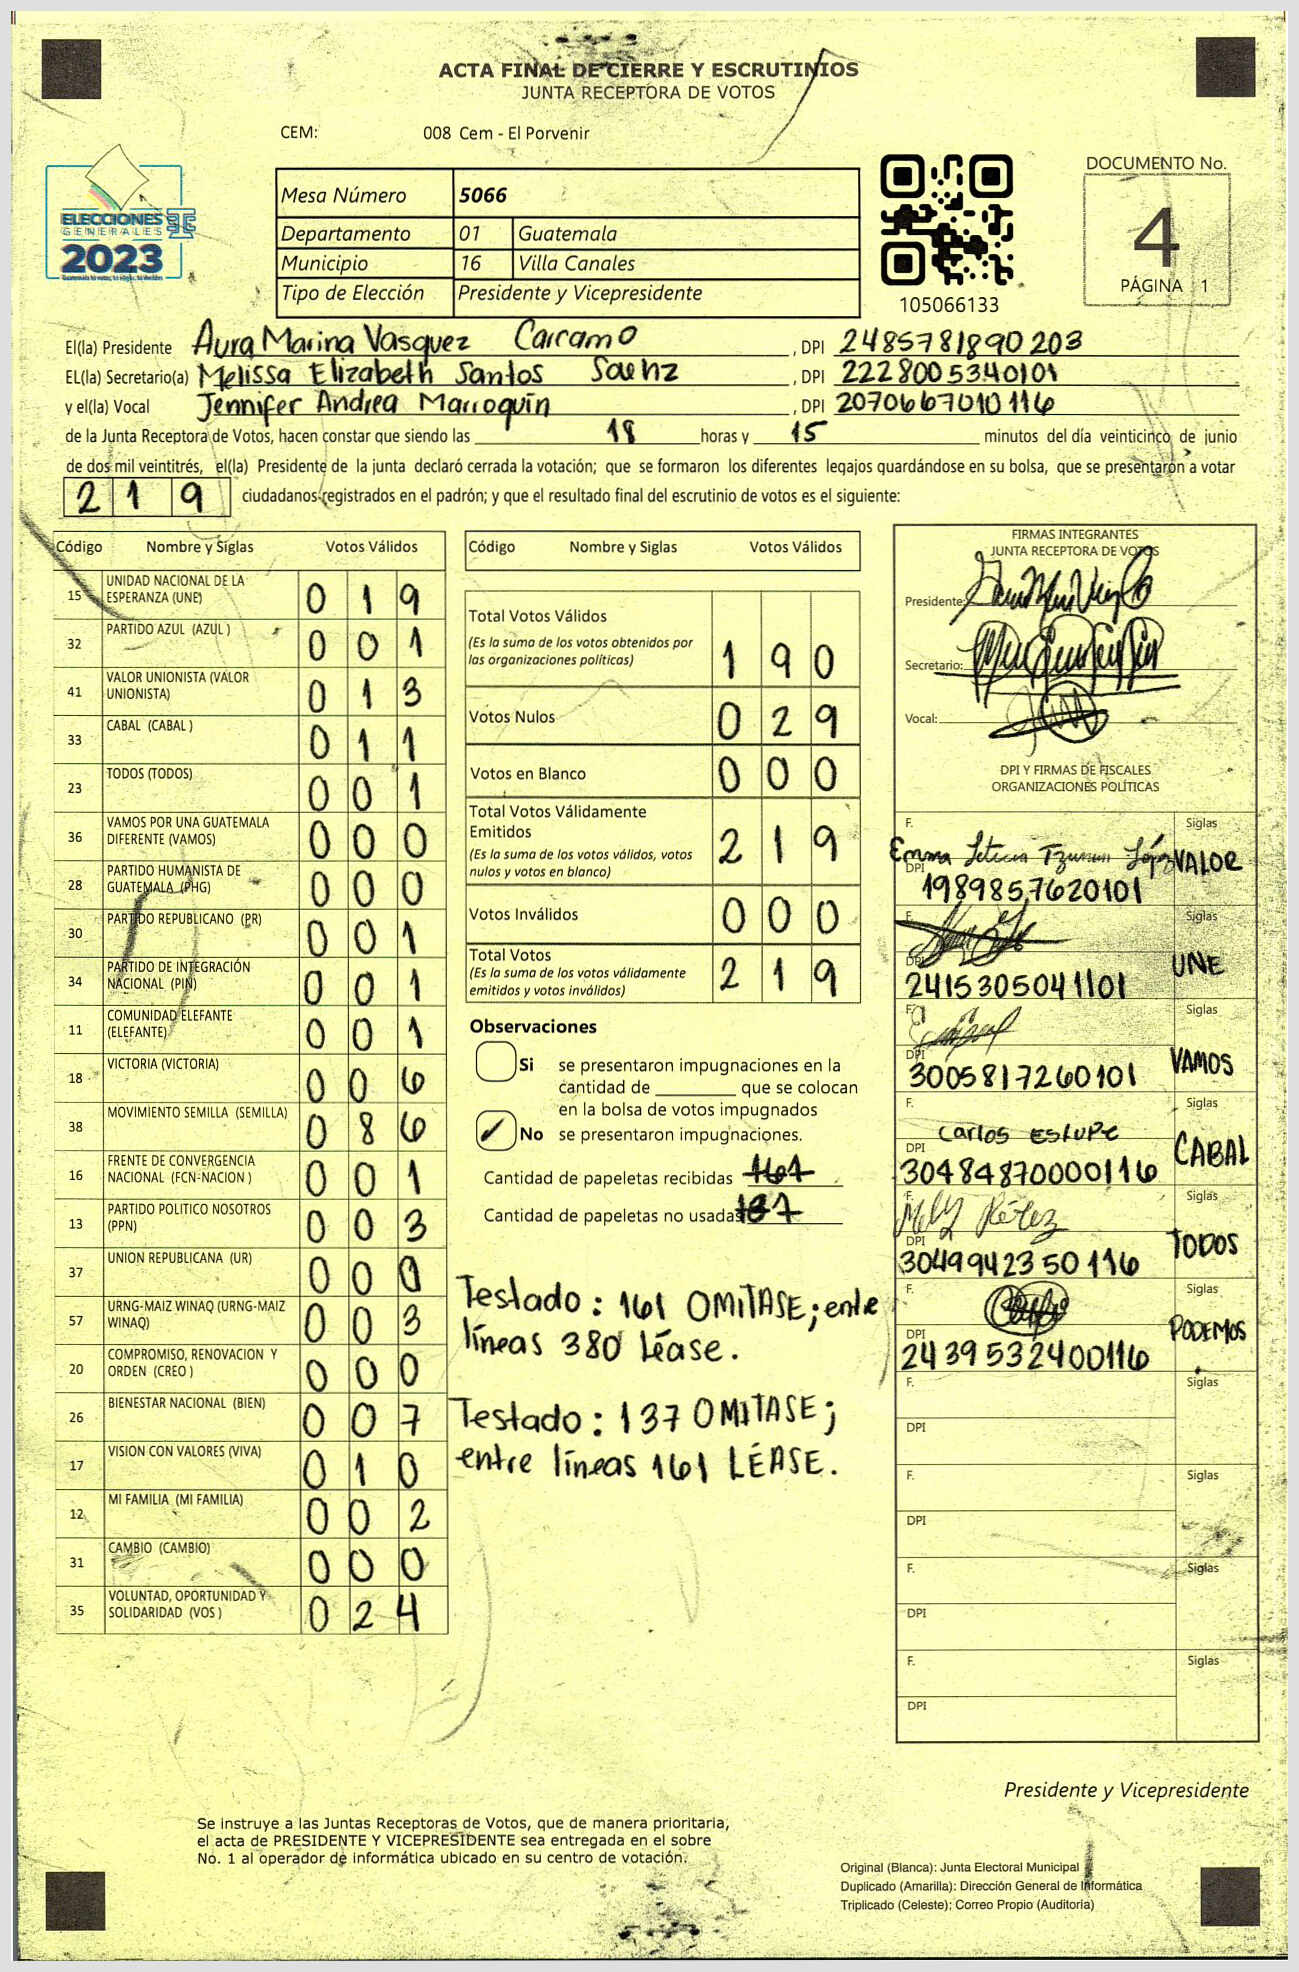 ACTA FINAL DE CIERRE Y ESCRUTINIOS
JUNTA RECEPTORA DE VOTOS
CEM: 008 Cem - El Porvenir
ELECCIONES
GENERALES
2023
Mesa Número 5066
Departamento 01 Guatemala
Municipio 16 Villa Canales
Tipo de Elección Presidente y Vicepresidente
105066133
DOCUMENTO No.
4
PÁGINA 1
El(la) Presidente Aura Marina Vasquez Carcamo , DPI 2485781890203
EL(la) Secretario(a) Melissa Elizabeth Santos Saenz , DPI 2228005340101
y el(la) Vocal Jennifer Andrea Marroquín , DPI 2070667010116
de la Junta Receptora de Votos, hacen constar que siendo las 18 horas y 15 minutos del día veinticinco de junio
de dos mil veintitrés, el(la) Presidente de la junta declaró cerrada la votación; que se formaron los diferentes legajos quardándose en su bolsa, que se presentaron a votar
219 ciudadanos registrados en el padrón; y que el resultado final del escrutinio de votos es el siguiente:
Código Nombre y Siglas Votos Válidos
15 UNIDAD NACIONAL DE LA ESPERANZA (UNE) 019
32 PARTIDO AZUL (AZUL ) 001
41 VALOR UNIONISTA (VALOR UNIONISTA) 013
33 CABAL (CABAL ) 011
23 TODOS (TODOS) 001
36 VAMOS POR UNA GUATEMALA DIFERENTE (VAMOS) 000
28 PARTIDO HUMANISTA DE GUATEMALA (PHG) 000
30 PARTIDO REPUBLICANO (PR) 001
34 PARTIDO DE INTEGRACIÓN NACIONAL (PIN) 001
11 COMUNIDAD ELEFANTE (ELEFANTE) 001
18 VICTORIA (VICTORIA) 006
38 MOVIMIENTO SEMILLA (SEMILLA) 086
16 FRENTE DE CONVERGENCIA NACIONAL (FCN-NACION ) 001
13 PARTIDO POLITICO NOSOTROS (PPN) 003
37 UNION REPUBLICANA (UR) 000
57 URNG-MAIZ WINAQ (URNG-MAIZ WINAQ) 003
20 COMPROMISO, RENOVACION Y ORDEN (CREO ) 000
26 BIENESTAR NACIONAL (BIEN) 007
17 VISION CON VALORES (VIVA) 010
12 MI FAMILIA (MI FAMILIA) 002
31 CAMBIO (CAMBIO) 000
35 VOLUNTAD, OPORTUNIDAD Y SOLIDARIDAD (VOS ) 024
Código Nombre y Siglas Votos Válidos
Total Votos Válidos 190
(Es la suma de los votos obtenidos por
las organizaciones políticas)
Votos Nulos 029
Votos en Blanco 000
Total Votos Válidamente
Emitidos 219
(Es la suma de los votos válidos, votos
nulos y votos en blanco)
Votos Inválidos 000
Total Votos 219
(Es la suma de los votos válidamente
emitidos y votos inválidos)
Observaciones
Si se presentaron impugnaciones en la
cantidad de ________ que se colocan
en la bolsa de votos impugnados
No se presentaron impugnaciones.
Cantidad de papeletas recibidas 161
Cantidad de papeletas no usadas 137
Testado: 161 OMITASE; entre
líneas 380 Léase.
Testado: 137 OMITASE;
entre líneas 161 LÉASE.
FIRMAS INTEGRANTES
JUNTA RECEPTORA DE VOTOS
Presidente:
Secretario:
Vocal:
DPI Y FIRMAS DE FISCALES
ORGANIZACIONES POLÍTICAS
F. Emma Leticia López Siglas VALOR
DPI 1989857620101
F. Siglas UNE
DPI 2415305041101
F. Siglas VAMOS
DPI 3005817260101
F. Carlos Estupe Siglas CABAL
DPI 3048487000116
F. Mely Pérez Siglas TODOS
DPI 3049942350116
F. Siglas PODEMOS
DPI 2439532400116
F. Siglas
DPI
F. Siglas
DPI
F. Siglas
DPI
F. Siglas
DPI
Presidente y Vicepresidente
Se instruye a las Juntas Receptoras de Votos, que de manera prioritaria,
el acta de PRESIDENTE Y VICEPRESIDENTE sea entregada en el sobre
No. 1 al operador de informática ubicado en su centro de votación.
Original (Blanca): Junta Electoral Municipal
Duplicado (Amarilla): Dirección General de Informática
Triplicado (Celeste): Correo Propio (Auditoria)